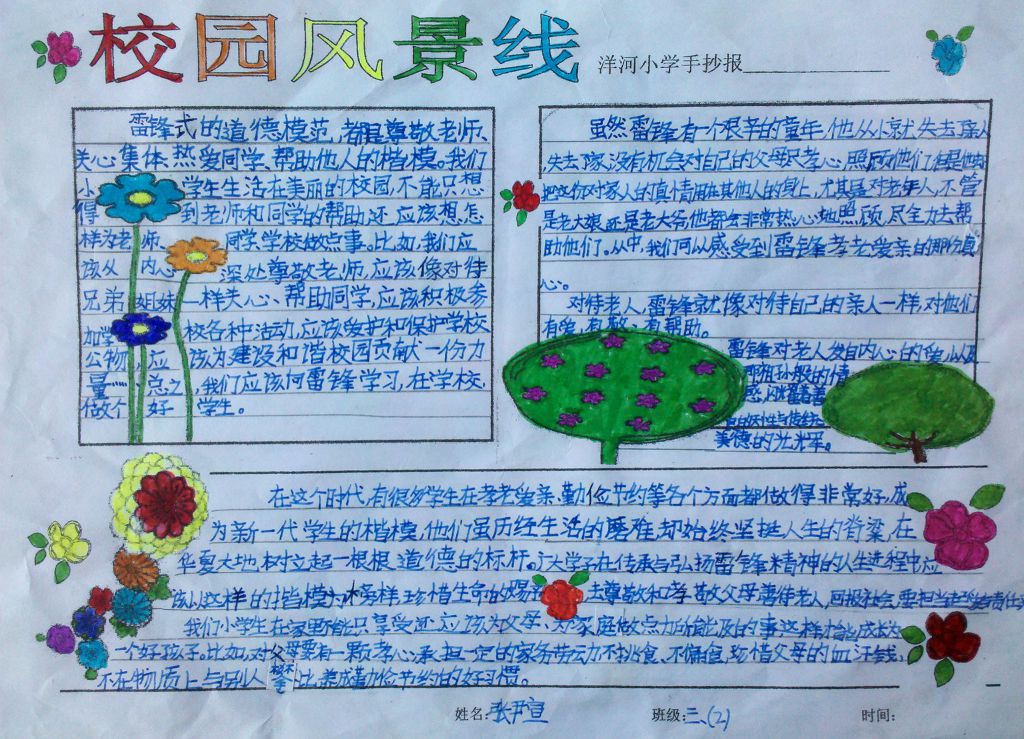 校园风景线
洋河小学手抄报
雷锋式的道德模范,都是尊敬老师、
关心集体、热爱同学、帮助他人的楷模。我们
小学生生活在美丽的校园,不能只想
得到老师和同学的帮助,还应该想怎
样为老师、同学、学校做点事。比如,我们应
该从内心深处尊敬老师,应该像对待
兄弟姐妹一样关心、帮助同学,应该积极参
加学校各种活动,应该爱护和保护学校
公物,应该为建设和谐校园贡献一份力
量……总之,我们应该向雷锋学习,在学校,
做个好学生。
虽然雷锋有一个艰辛的童年,他从小就失去亲人
失去家,没有机会对自己的父母尽孝心,照顾他们,但是他却
把这份对家人的真情用在其他人的身上,尤其是对老年人,不管
是老大娘还是老大爷他都会非常热心地照顾,尽全力去帮
助他们。从中,我们可以感受到雷锋孝老爱亲的那份真
心。
对待老人,雷锋就像对待自己的亲人一样,对他们
有爱,有有帮助。
雷锋对老人发自内心的爱,以及
那祖孙般的情
感,
美德的光辉。
在这个时代,有很多学生在孝老爱亲、勤俭节约等各个方面都做得非常好,成
为新一代学生的楷模,他们虽历经生活的磨难,却始终坚挺人生的脊梁,在
华夏大地,树立起一根根道德的标杆。广大学子在传承与弘扬雷锋精神的人生进程中,应
该以这样的楷模为榜样,珍惜生命的赐予,去尊敬和孝敬父母,善待老人,回报社会,要担当起
我们小学生在家里不能只享受,还应该为父母、为家庭做点力所能及的事,这样才能成长为
一个好孩子。比如,对父母要有一颗孝心,承担一定的家务劳动,不挑食、不偏食,珍惜父母的血汗钱,
不在物质上与别人攀比,养成勤俭节约的好习惯。
姓名:张尹宣 班级:三、(2) 时间: